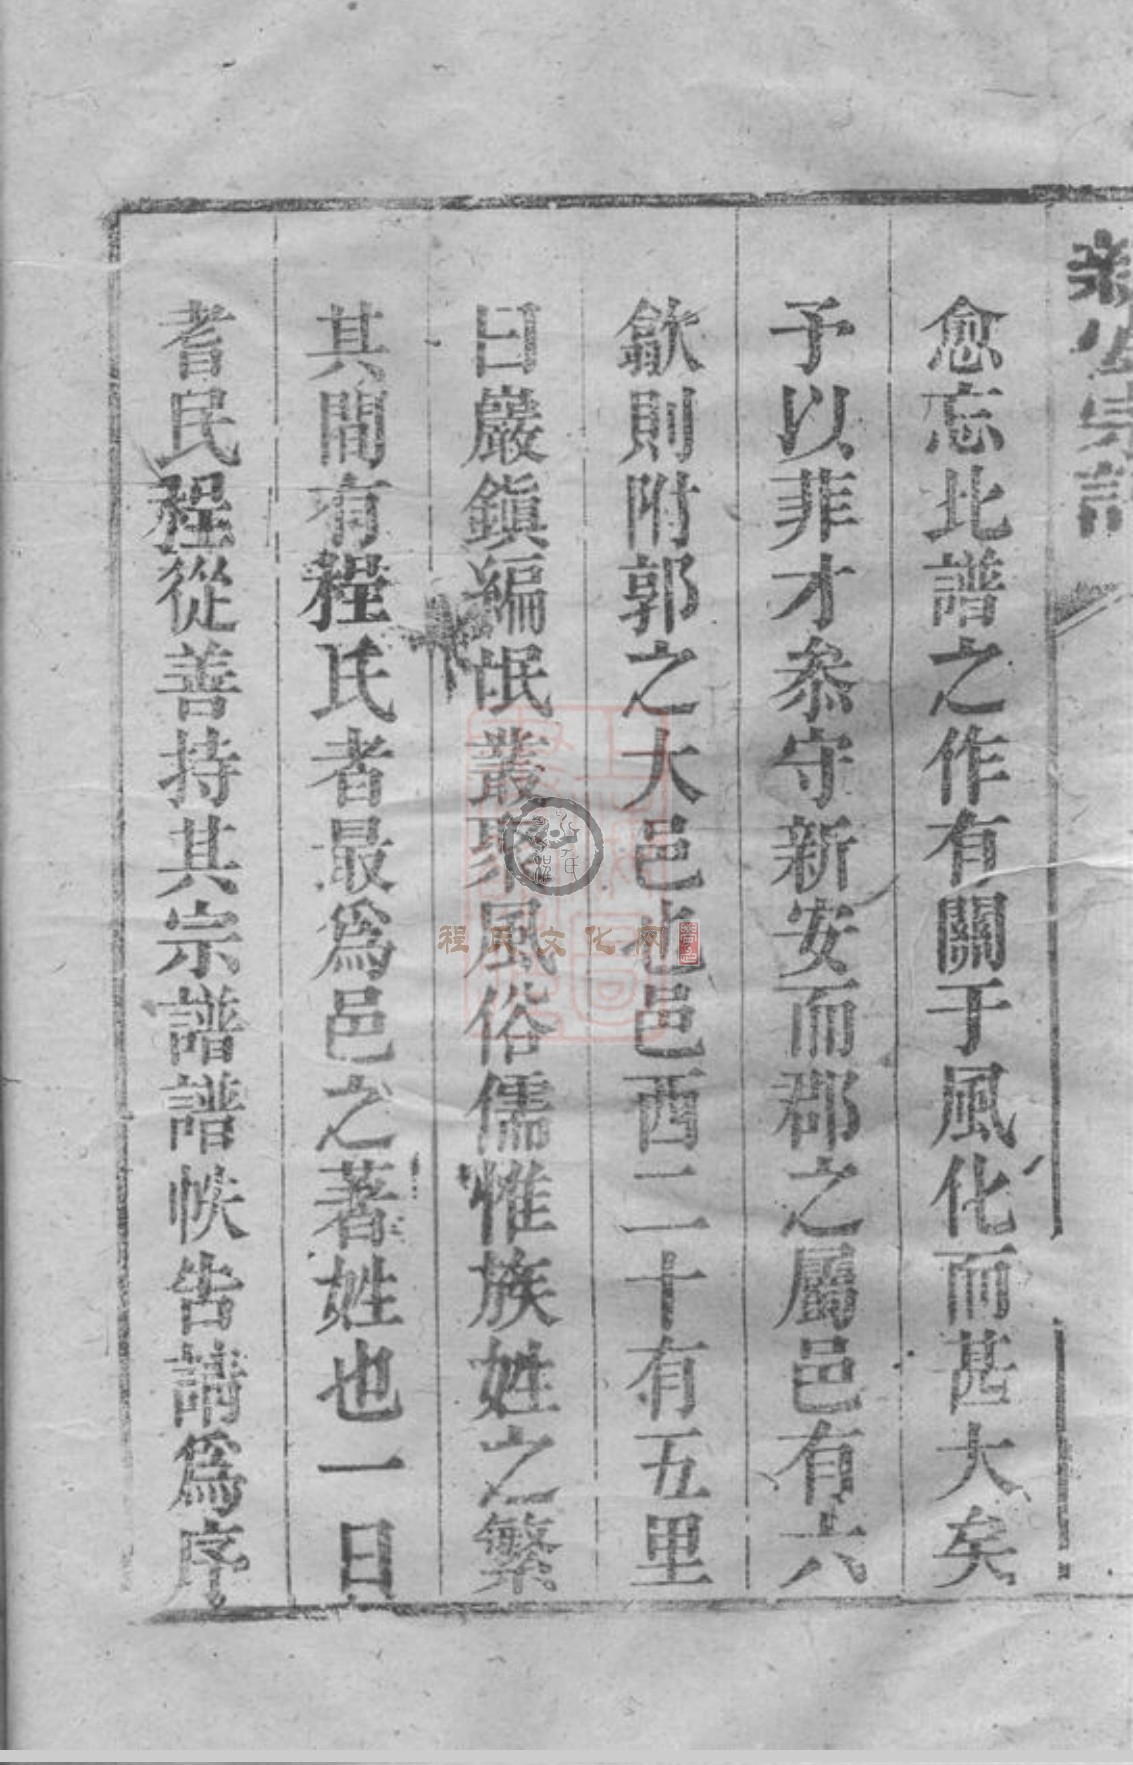 愈忘此譜之作有關于風化而甚大矣
予以菲才叅守新安而郡之屬邑有六
歙則附郭之大邑也邑西二十有五里
曰巖鎮編氓叢聚風俗儒惟族姓之繁
其間有程氏者最爲邑之著姓也一日
耆民程從善持其宗譜譜帙告請爲序
程氏文化网